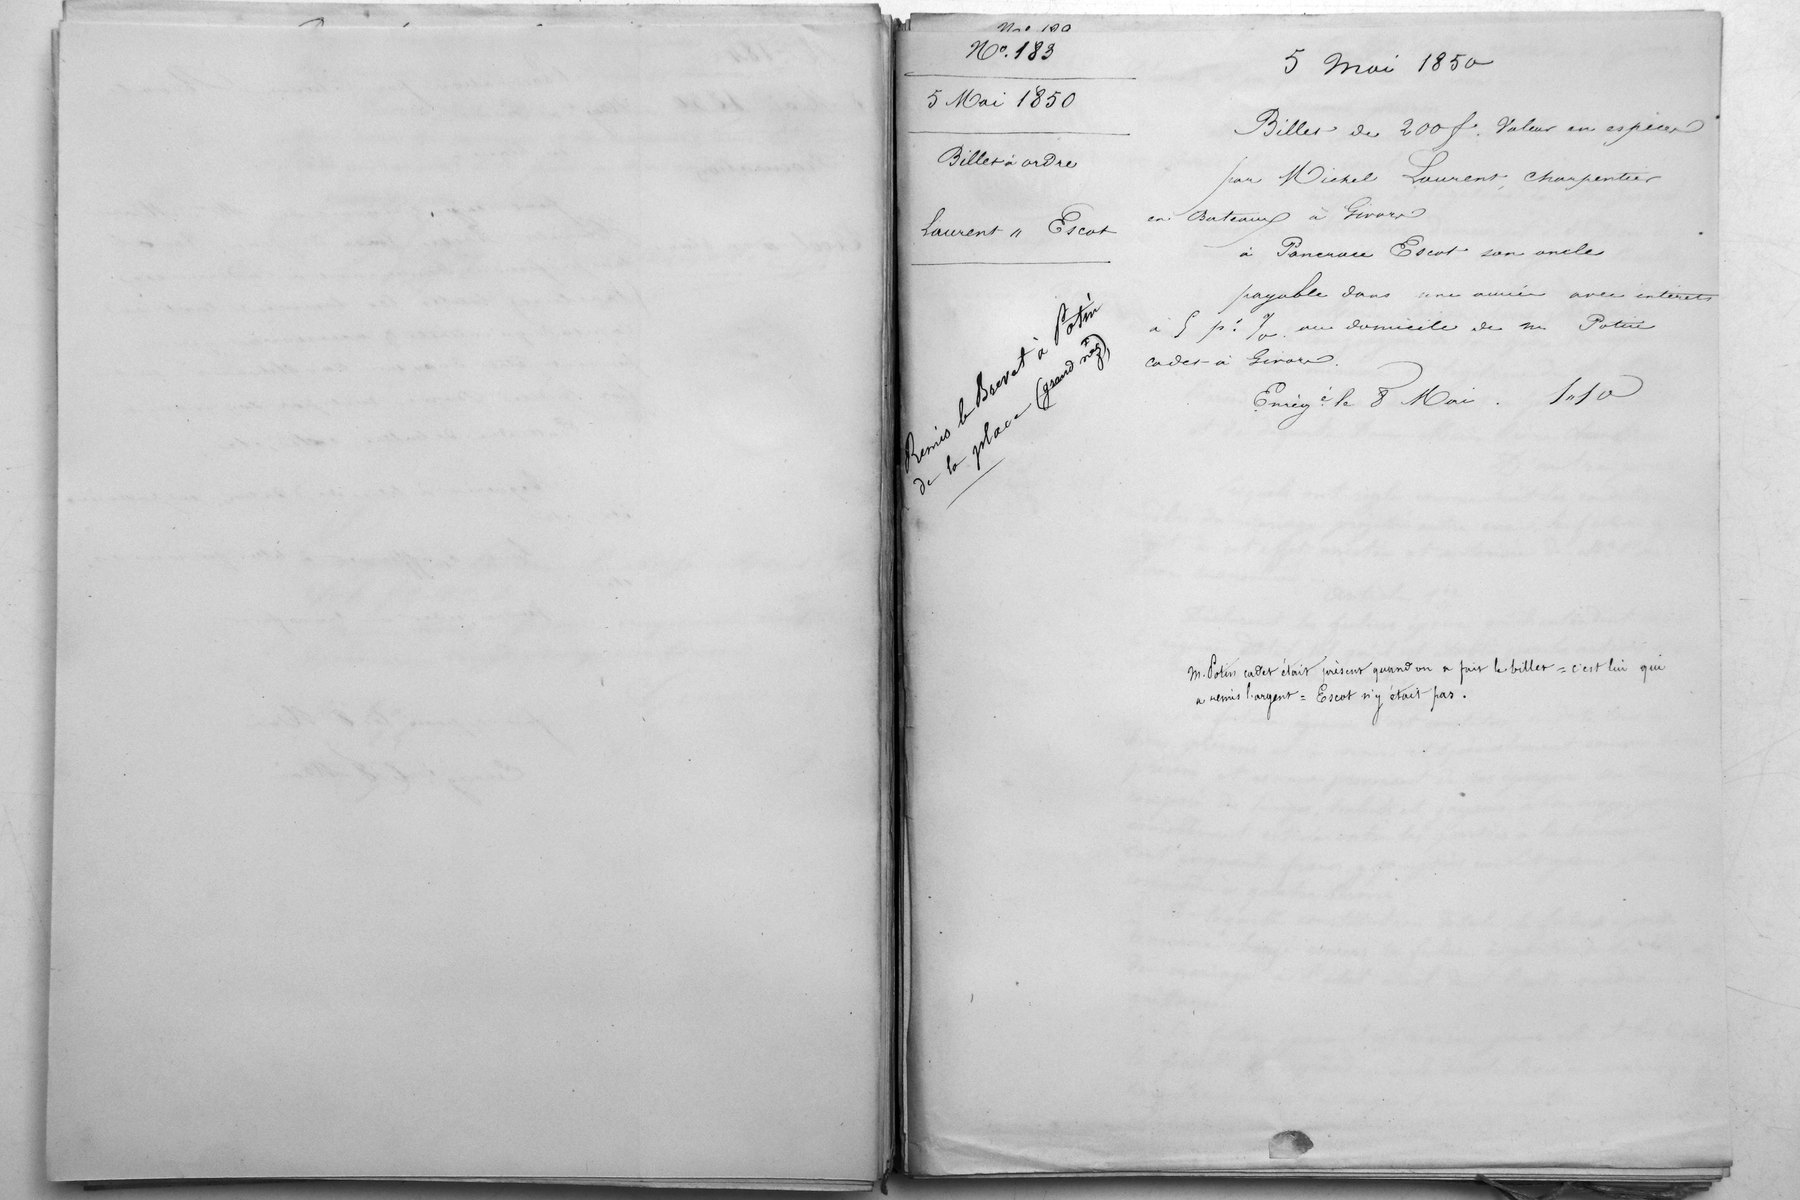 No. 183
5 Mai 1850
Billet à ordre
Laurent " Escot
Remis le Brevet à Potin
de la place (grand
5 Mai 1850
Billet de 200 f. Valeur en espèces
par Michel Laurent, charpentier
en Bateaux à Givors
à Pancrace Escot son oncle
payable dans une année avec intérêts
à 5 p. % au domicile de m Potin
cadet à Givors.
Enreg.é le 8 Mai. 1 " 10
m. Potin cadet était présent quand on a fait le billet = c'est lui qui
a remis l'argent = Escot n'y était pas.